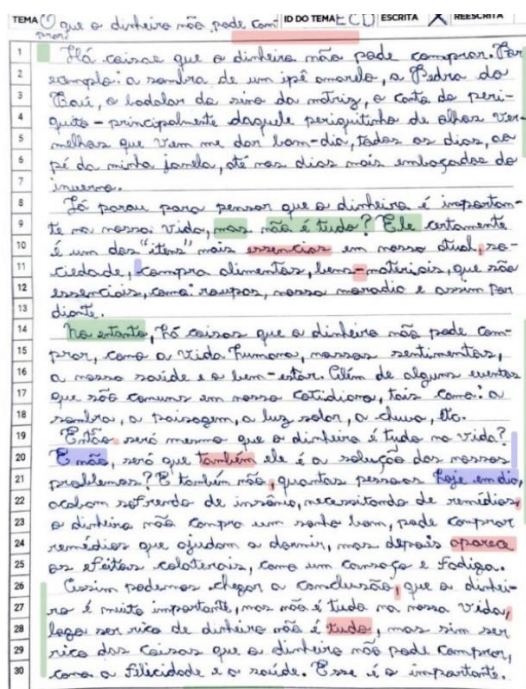 TEMA O que o dinheiro não pode com- ID DO TEMA ECD ESCRITA X REESCRITA
prar
1 Há coisas que o dinheiro não pode comprar. Por
2 exemplo: a sombra de um ipê amarelo, a Pedra do
3 Baú, o badalar do sino da matriz, o canto do peri-
4 quito - principalmente daquele periquitinho de olhos ver-
5 melhos que vem me dar bom-dia, todos os dias, ao
6 pé da minha janela, até nos dias mais embaçados do
7 inverno.
8 Já parou para pensar que o dinheiro é importan-
9 te na nossa vida, mas não é tudo? Ele certamente
10 é um dos "itens" mais essencias em nosso atual, so-
11 ciedade, compra alimentos, bens-materiais, que são
12 essenciais, como: roupas, nossa moradia e assim por
13 diante.
14 No entanto, há coisas que o dinheiro não pode com-
15 prar, como a vida humana, nossos sentimentos,
16 a nossa saúde e o bem-estar. Além de alguns eventos
17 que são comuns em nosso cotidiano, tais como: a
18 sombra, a paisagem, a luz solar, a chuva, etc.
19 Então será mesmo que o dinheiro é tudo na vida?
20 E não, será que também ele é a solução dos nossos
21 problemas? E também não, quantas pessoas hoje em dia,
22 acabam sofrendo de insônia, necessitando de remédios,
23 o dinheiro não compra um sonho bom, pode comprar
24 remédios que ajudam a dormir, mas depois aparece
25 os efeitos colaterais, como um cansaço e fadiga.
26 Assim podemos chegar a conclusão, que o dinhei-
27 ro é muito importante, mas não é tudo na nossa vida,
28 logo ser rico de dinheiro não é tudo, mas sim ser
29 rico das coisas que o dinheiro não pode comprar,
30 como a felicidade e a saúde. Esse é o importante.